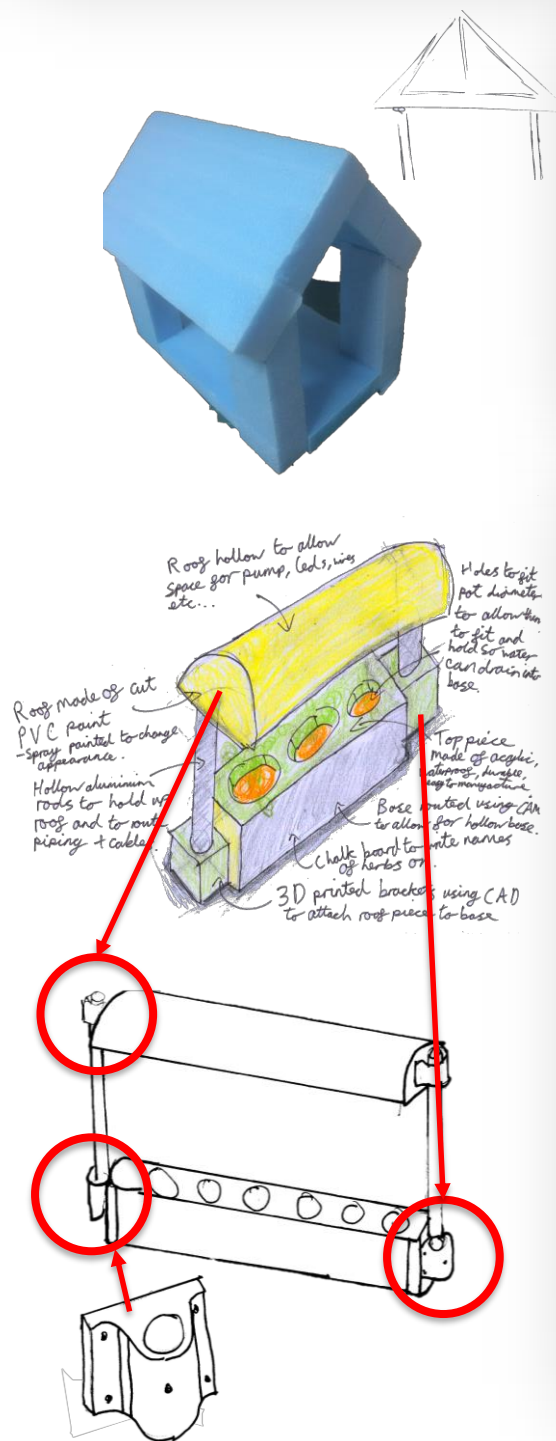 Roof hollow to allow
space for pump, leds, wires
etc...
Holes to fit
pot diameter
to allow them
to fit and
hold so water
can drain into
base.
Roof made of cut
PVC paint
- Spray painted to change
appearance.
Hollow aluminium
rods to hold up
roof and to route
piping + cable
Top piece
made of acrylic,
waterproof, durable,
easy to manufacture
Base routed using CAM
to allow for hollow base.
Chalk board to write names
of herbs on.
3D printed brackets using CAD
to attach roof piece to base